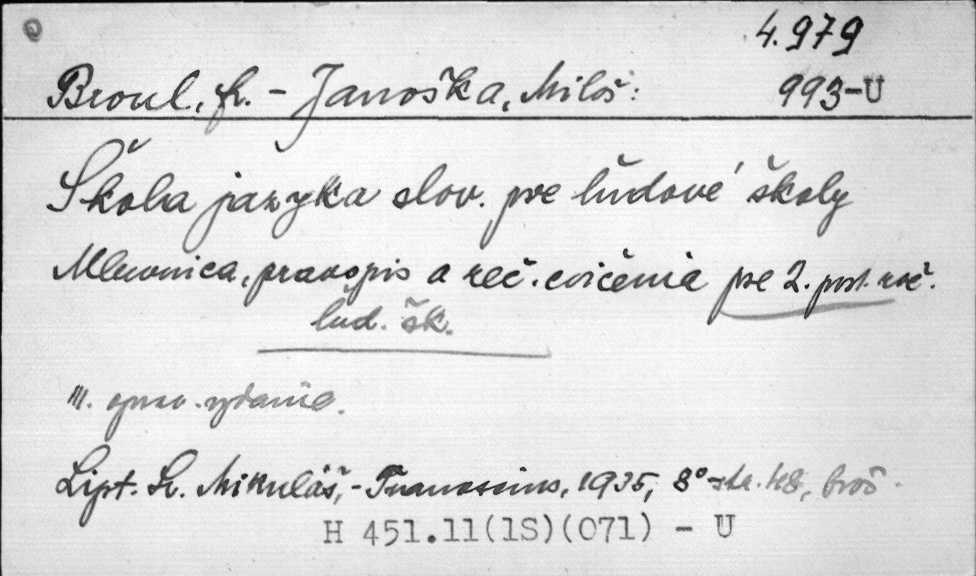 4.979
Broul, Fr. - Janoška, Miloš: 993-U
Škola jazyka slov. pre ľudové školy
Mluvnica, pravopis a reč. cvičenia pre 2. post. roč.
ľud. šk.
III. oprav. vydanie.
Lipt. Sv. Mikuláš, - Tranoscius, 1935, 8° - str. 48, broš.
H 451.11(1S)(071) - U